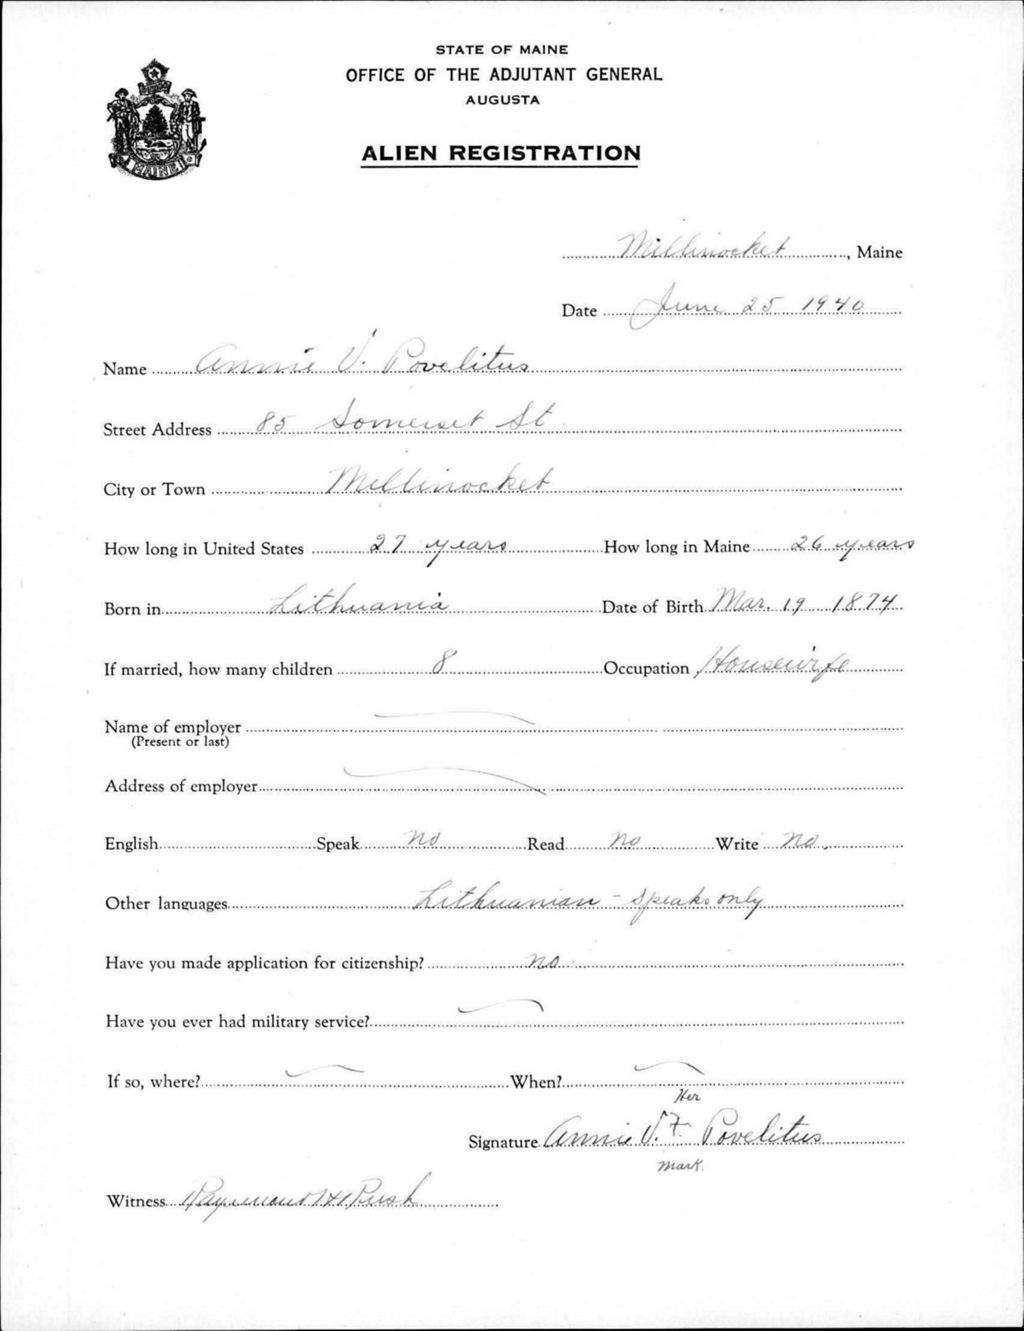 STATE OF MAINE
OFFICE OF THE ADJUTANT GENERAL
AUGUSTA
ALIEN REGISTRATION
MAINE
Millinocket, Maine
Date June 25 1940
Name Annie V. Povelitus
Street Address 85 Somerset St
City or Town Millinocket
How long in United States 27 years How long in Maine 26 years
Born in Lithuania Date of Birth Mar. 19 1874
If married, how many children 8 Occupation Housewife
Name of employer
(Present or last)
Address of employer
English Speak no Read no Write no.
Other languages Lithuanian - Speaks only
Have you made application for citizenship? no
Have you ever had military service?
If so, where? When?
Her
Signature Annie V. + Povelitus
mark
Witness Raymond H Rush